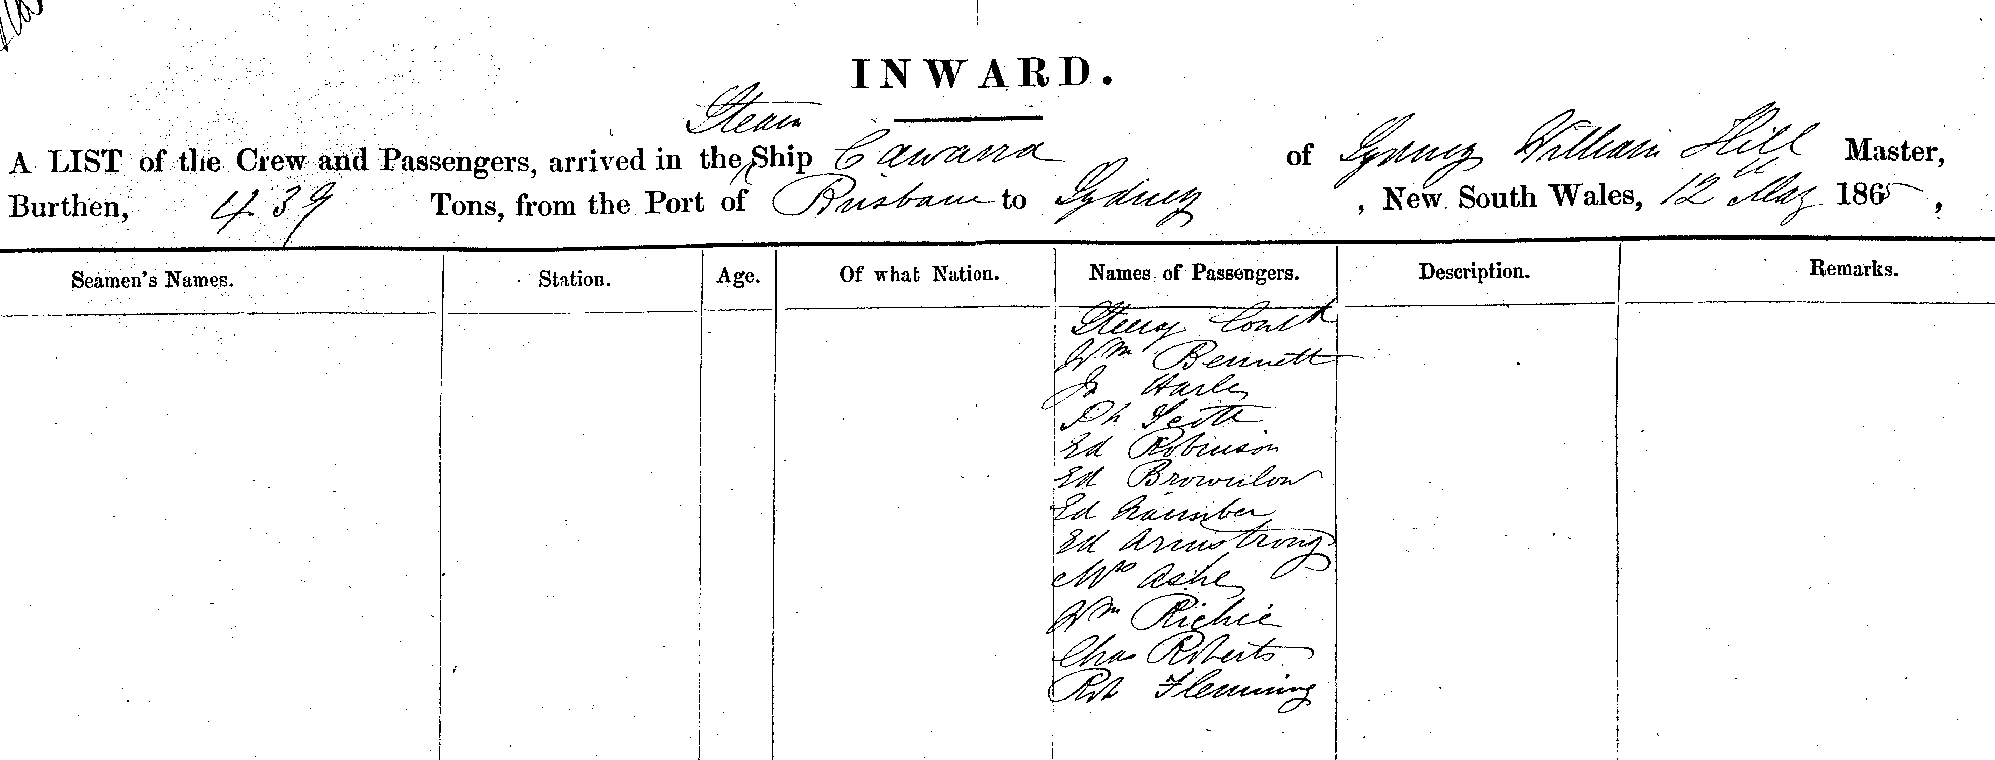 INWARD.
Steam
A LIST of the Crew and Passengers, arrived in the Ship Cawarra of Sydney William Hill Master,
Burthen, 439 Tons, from the Port of Brisbane to Sydney, New South Wales, 12th May 1865,
Seamen's Names. Station. Age. Of what Nation. Names of Passengers. Description. Remarks.
Steerag
Wm Bennett
Js Harle
Ph Scott
Ed Robinson
Ed Brownlow
Ed
Ed Armstrong
Mrs Ashe
Wm Richie
Chas Roberts
Rbt Flemming